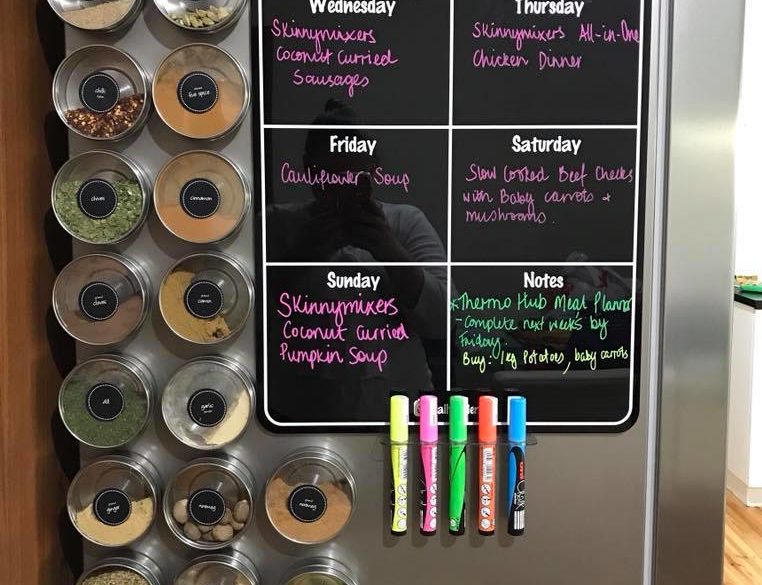 Wednesday
Skinnymixers
Coconut Curried
Sausages
Thursday
Skinnymixers All-in-One
Chicken Dinner
Friday
Cauliflower Soup
Saturday
Slow Cooked Beef Cheeks
with Baby carrots +
mushrooms.
Sunday
Skinnymixers
Coconut Curried
Pumpkin Soup
Notes
*Thermo Hub Meal Planner
- Complete next week's by
Friday.
Buy: 1kg Potatoes, baby carrots
chilli
five spice
chives
cinnamon
ground
cloves
ground
cumin
dill
garlic
ground
ginger
nutmeg
ground
nutmeg